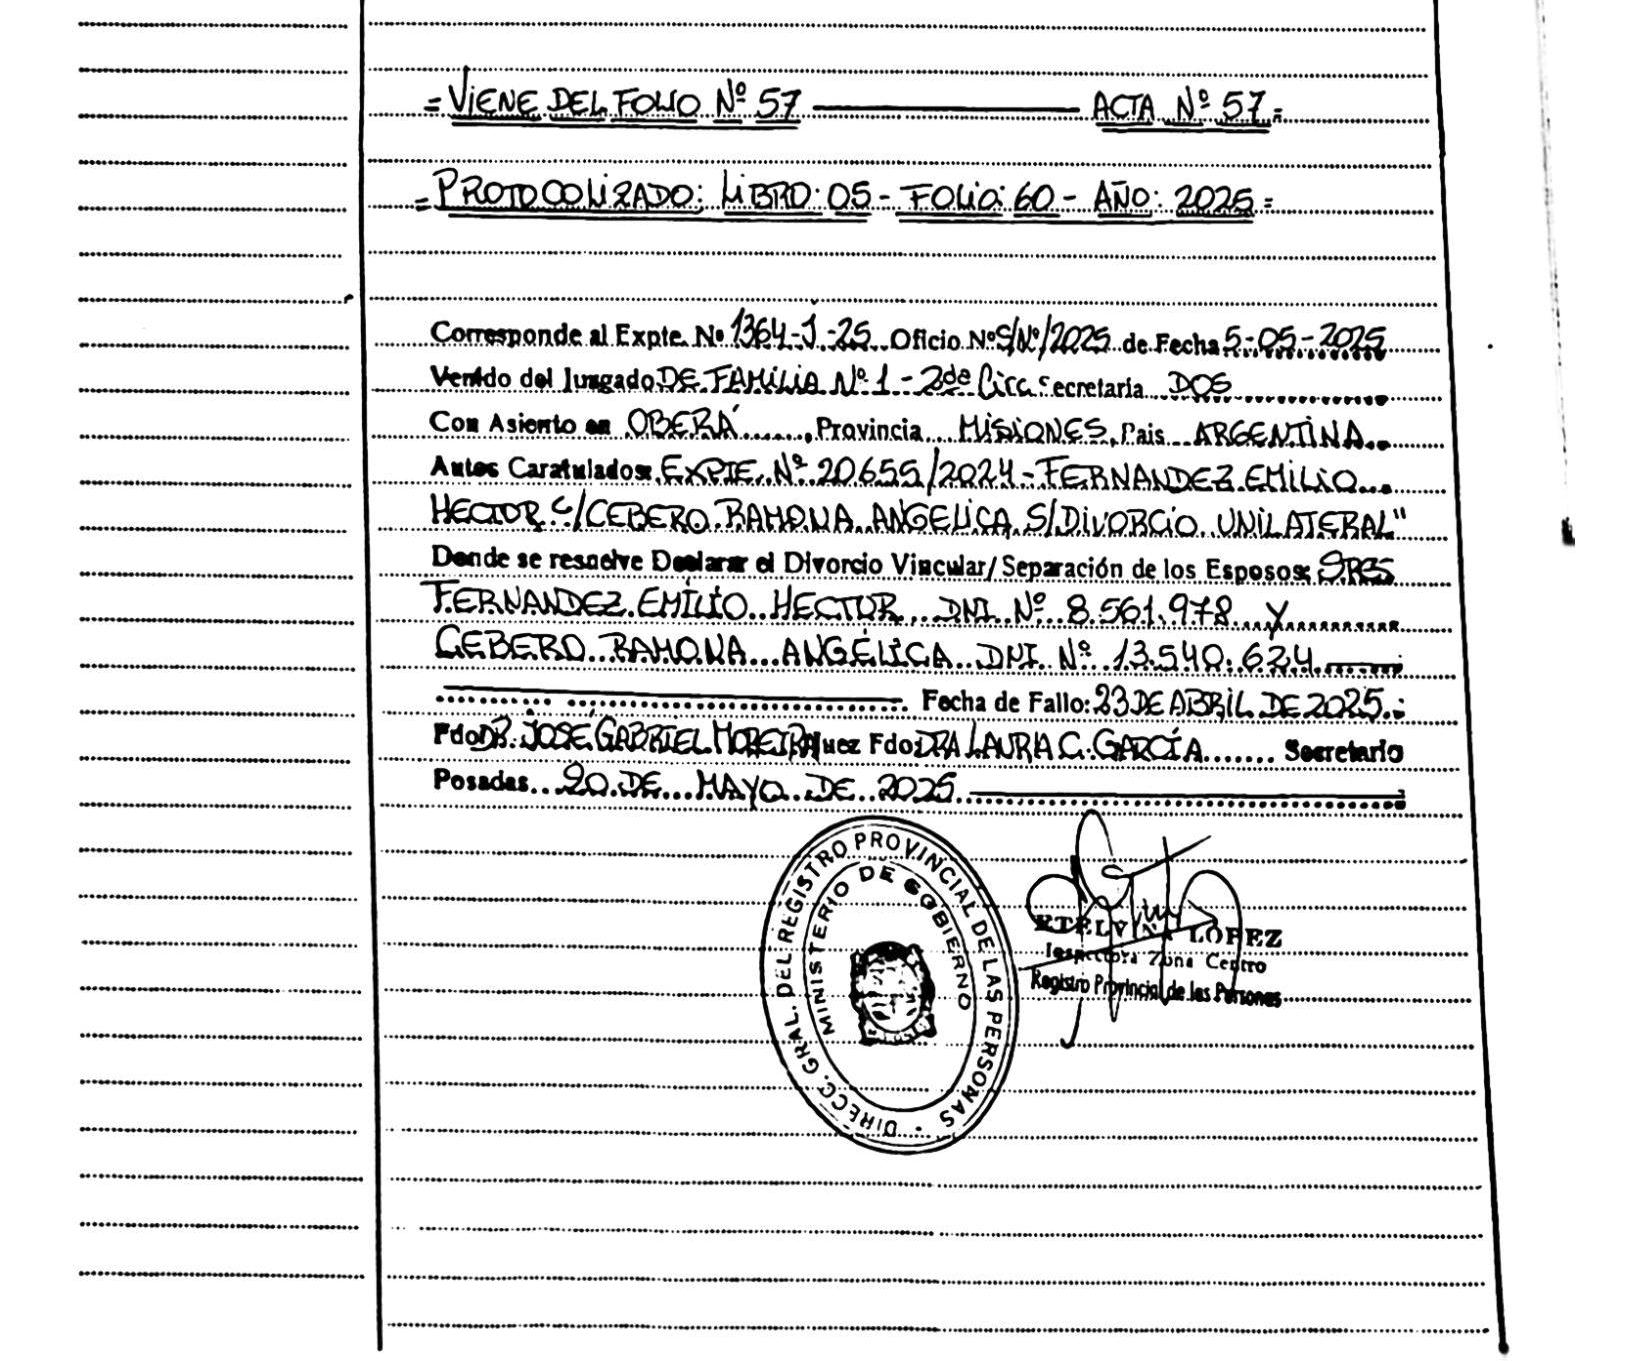 = VIENE DEL FOLIO Nº 57 ———— ACTA Nº 57 =
= PROTOCOLIZADO: LIBRO: 05 - FOLIO: 60 - AÑO: 2025 =
Corresponde al Expte. Nº 1364-J-25 Oficio Nº S/Nº/2025 de Fecha 5-05-2025
Venido del Juzgado DE FAMILIA Nº 1 - 2da Circ. Secretaría DOS
Con Asiento en OBERÁ, Provincia MISIONES, Pais ARGENTINA
Autos Caratulados: EXPTE. Nº 20655/2024 - FERNANDEZ EMILIO
HECTOR C/ CEBERO RAMONA ANGELICA S/ DIVORCIO UNILATERAL"
Donde se resuelve Declarar el Divorcio Vincular/ Separación de los Esposos: SRES
FERNANDEZ EMILIO HECTOR DNI Nº 8.561.978 Y
CEBERO RAMONA ANGÉLICA DNI Nº 13.540.624
Fecha de Fallo: 23 DE ABRIL DE 2025.
Fdo DR. JOSÉ GABRIEL MOREIRA Juez Fdo: DRA LAURA C. GARCÍA Secretario
Posadas 20 DE MAYO DE 2025
DIRECC. GRAL. DEL REGISTRO PROVINCIAL DE LAS PERSONAS
MINISTERIO DE GOBIERNO
ETELVINA LOPEZ
Inspectora Zona Centro
Registro Provincial de las Personas